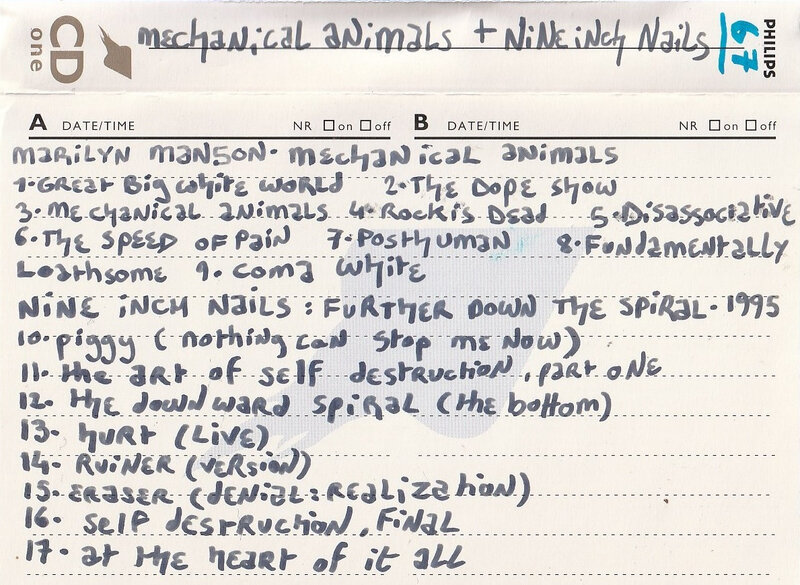 CD one
mechanical animals + Nine inch Nails
67
PHILIPS
A DATE/TIME NR on off B DATE/TIME NR on off
MARILYN MANSON. MECHANICAL ANIMALS
1. GREAT Big white WORLD 2. The Dope show
3. Mechanical animals 4. Rock is Dead 5. Disassociative
6. The SPEED OF PAIN 7. Posthuman 8. Fundamentally
Loathsome 9. coma white
NiNE iNCH Nails : FURTHER DOWN THE SPIRAL. 1995
10. piggy (nothing can stop me now)
11. the art of self destruction, part one
12. the downward spiral (the bottom)
13. hurt (Live)
14. RUINER (VERSION)
15. ERASER (DENIAL: REALIZATION)
16. self destruction, Final
17. at the heart of it all